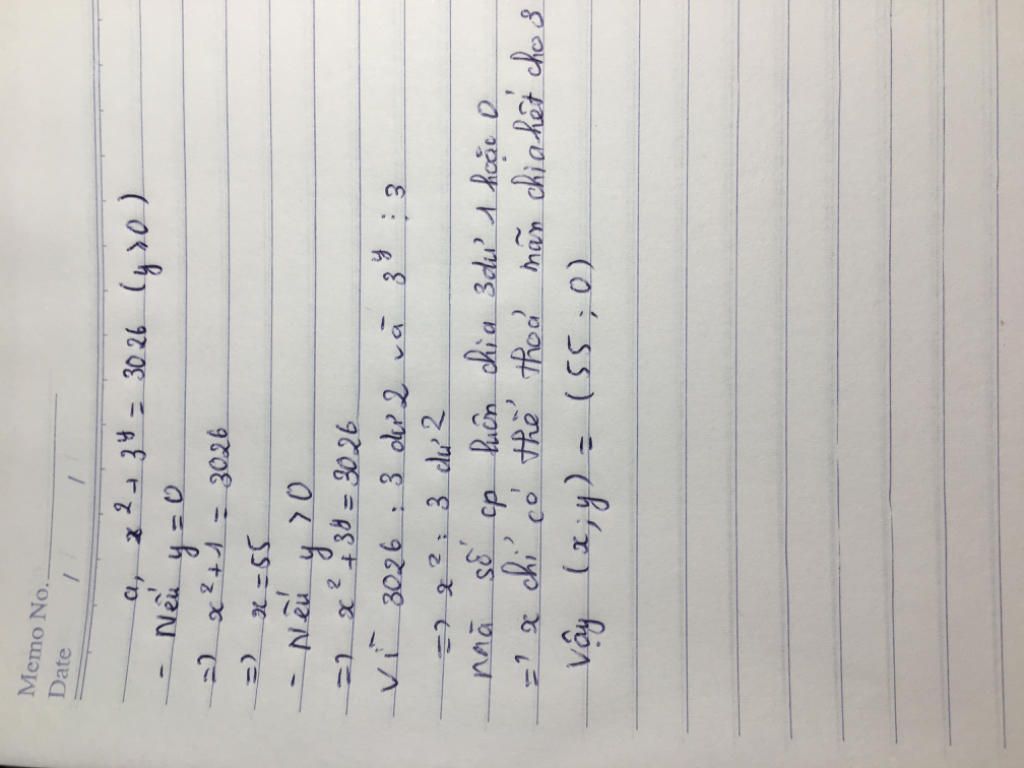 Memo No.
Date / /
a, x² + 3ʸ = 3026 (y>0)
- Nếu y = 0
=> x² + 1 = 3026
=> x = 55
- Nếu y > 0
=> x² + 3ʸ = 3026
Vì 3026 : 3 dư 2 và 3ʸ ⋮ 3
=> x² : 3 dư 2
mà số cp luôn chia 3 dư 1 hoặc 0
=> x chỉ có thể thoả mãn chia hết cho 3
Vậy (x;y) = (55 ; 0)